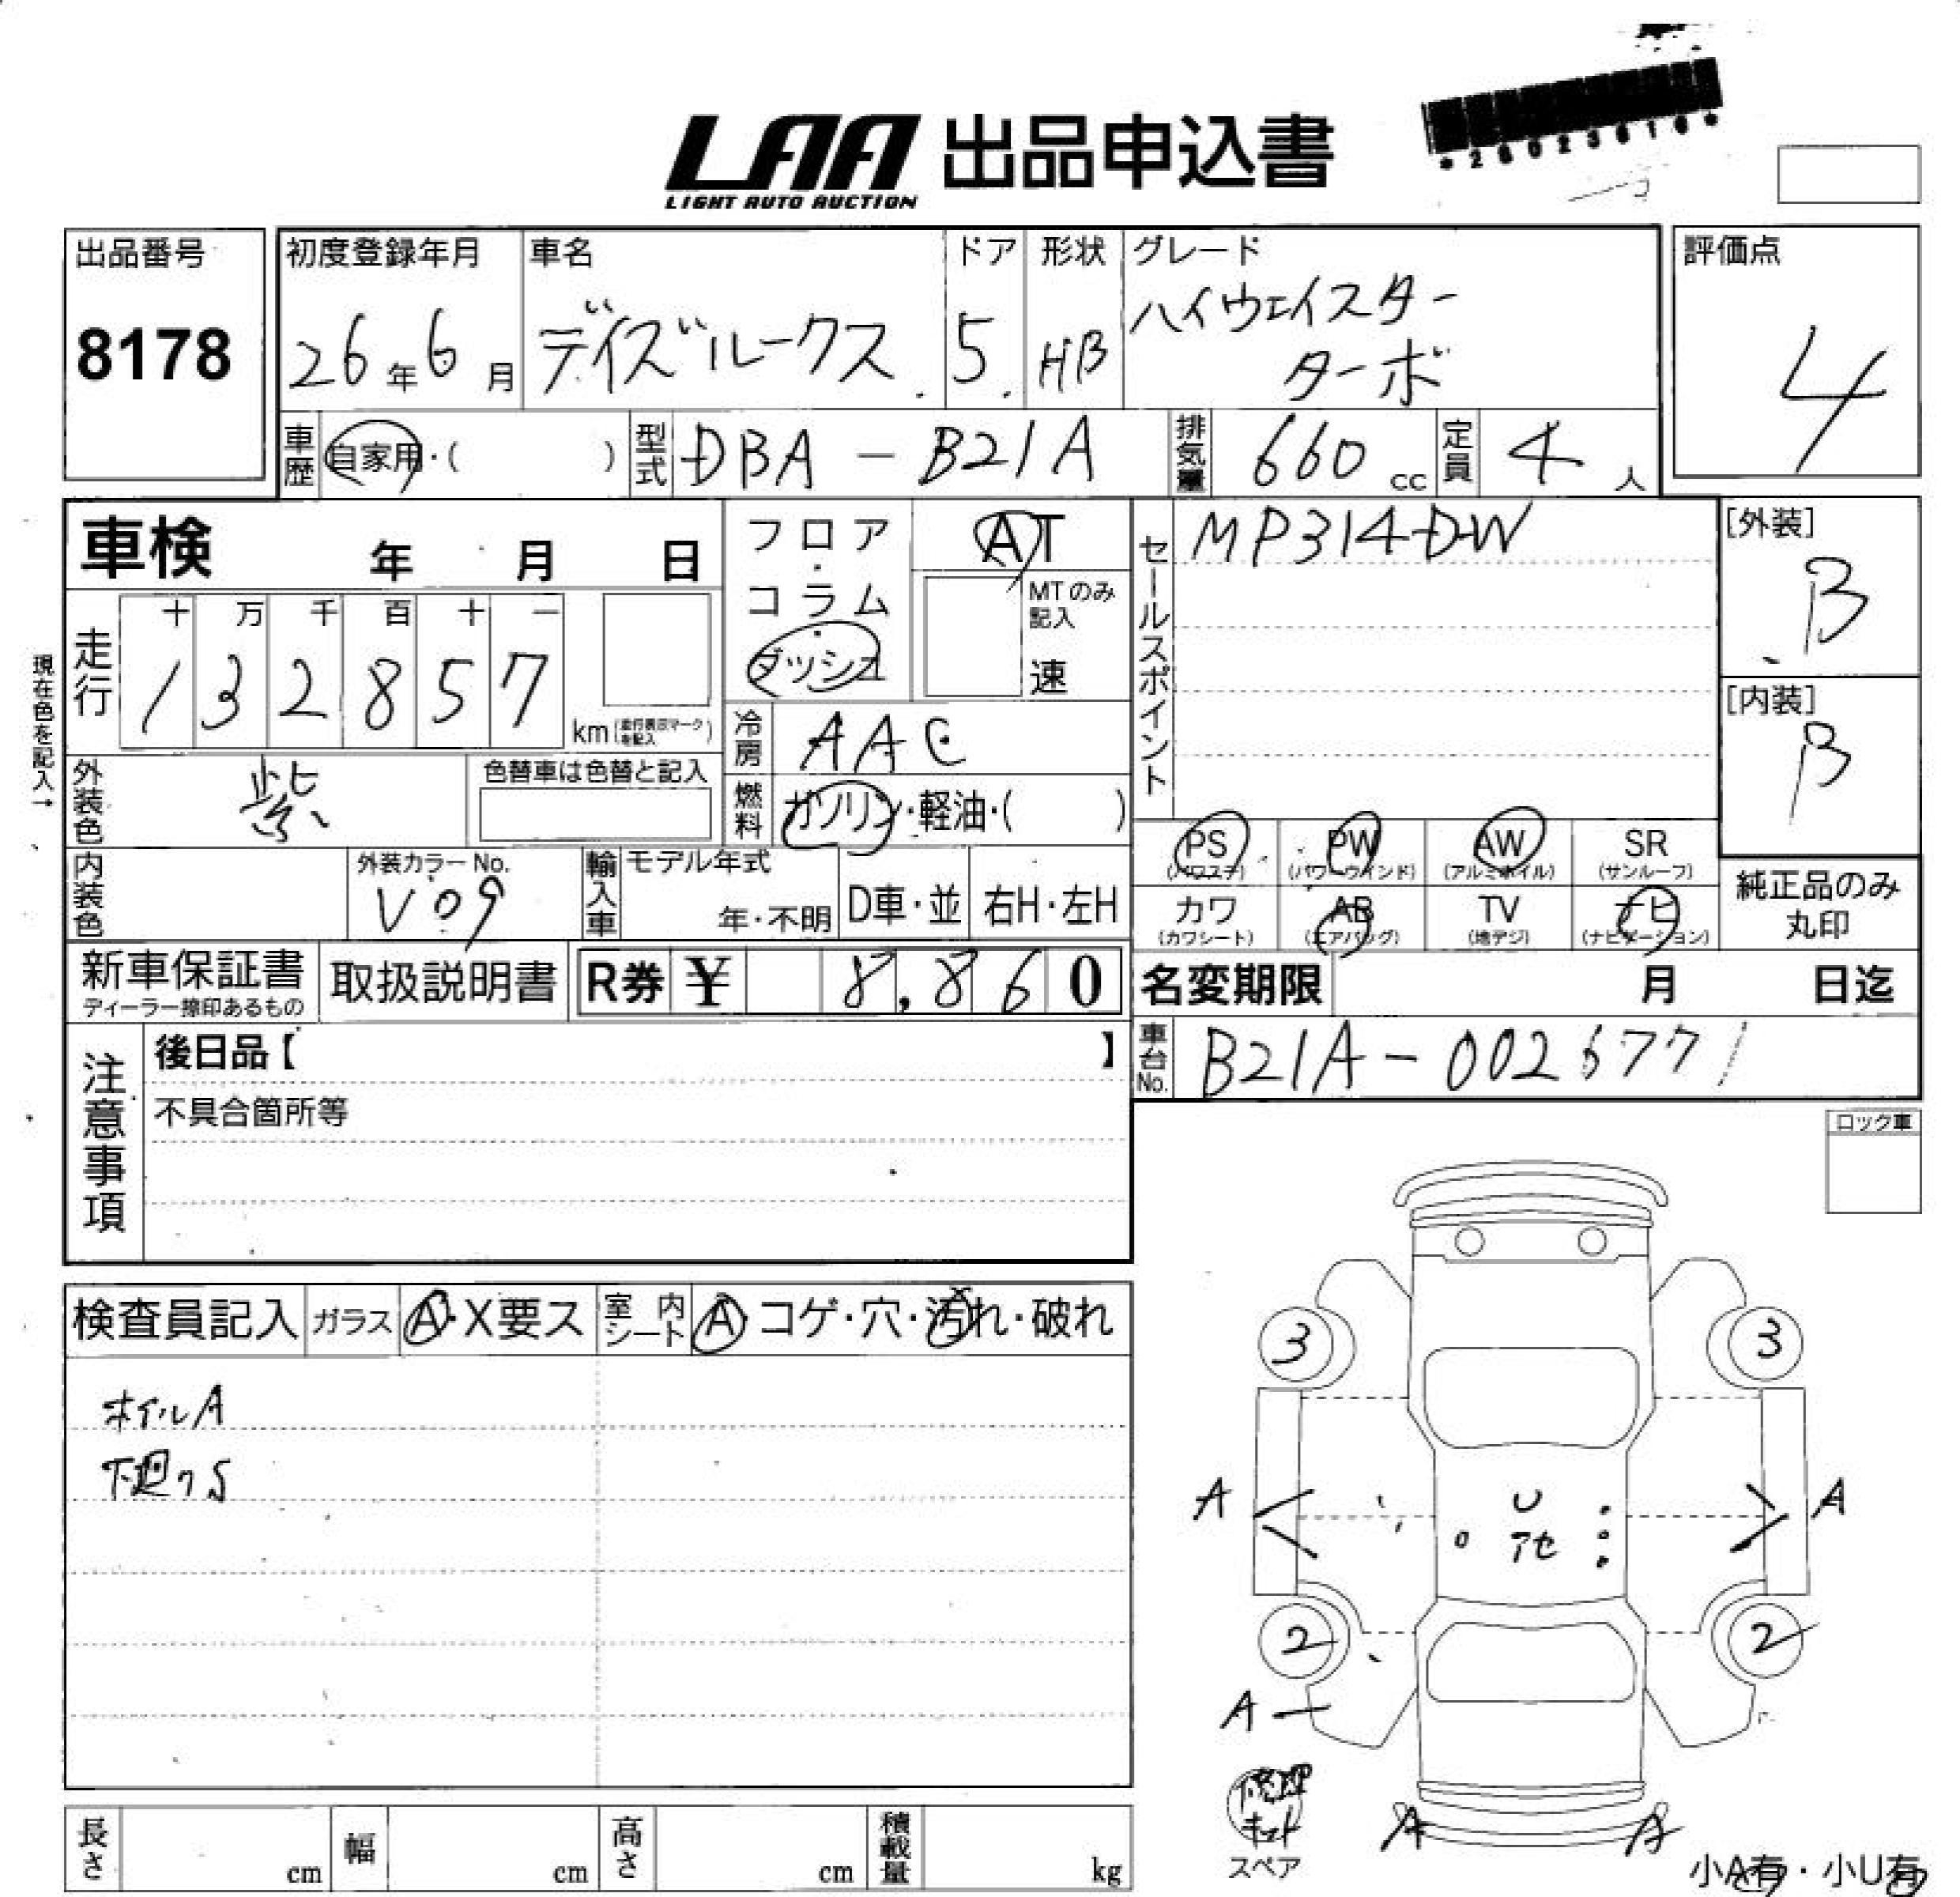 LAA 出品申込書
LIGHT AUTO AUCTION
出品番号
8178
初度登録年月
26年6月
車名
デイズルークス
ドア
5
形状
HB
グレード
ハイウェイスター
ターボ
評価点
4
車歴 自家用・( )
型式 DBA-B21A
排気量 660cc
定員 4人
車検 年 月 日
フロア・コラム・ダッシュ
AT
MTのみ記入
速
セールスポイント
MP314DW
[外装]
B
[内装]
B
現在色を記入→
走行
十 万 千 百 十 一
1 3 2 8 5 7
km(走行表示マークを記入)
冷房 AAC
外装色 紫
色替車は色替と記入
燃料 ガソリン・軽油・( )
PS (パワステ)
PW (パワーウインド)
AW (アルミホイル)
SR (サンルーフ)
内装色
外装カラーNo.
V09
輸入車
モデル年式
年・不明
D車・並
右H・左H
カワ (カワシート)
AB (エアバッグ)
TV (地デジ)
ナビ (ナビゲーション)
純正品のみ
丸印
新車保証書
ディーラー捺印あるもの
取扱説明書
R券 ¥ 8,860
名変期限 月 日迄
車台No. B21A-0026771
注意事項
後日品【 】
不具合箇所等
ロック車
検査員記入
ガラス A・X要ス
室内シート A コゲ・穴・汚れ・破れ
ホイルA
下廻りS
3
3
A
U
アセ
A
2
2
A
修理
キット
スペア
A
A
小A有・小U有
長さ cm
幅 cm
高さ cm
積載量 kg